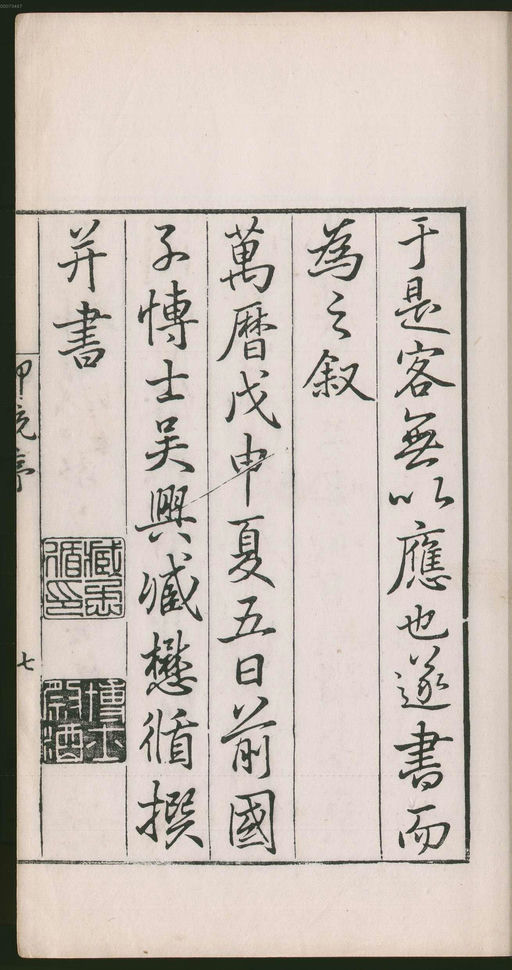 于是客無以應也遂書而
為之叙
萬曆戊申夏五日前國
子博士吳興臧懋循撰
并書
臧懋循印
博士祭酒
七
00073447